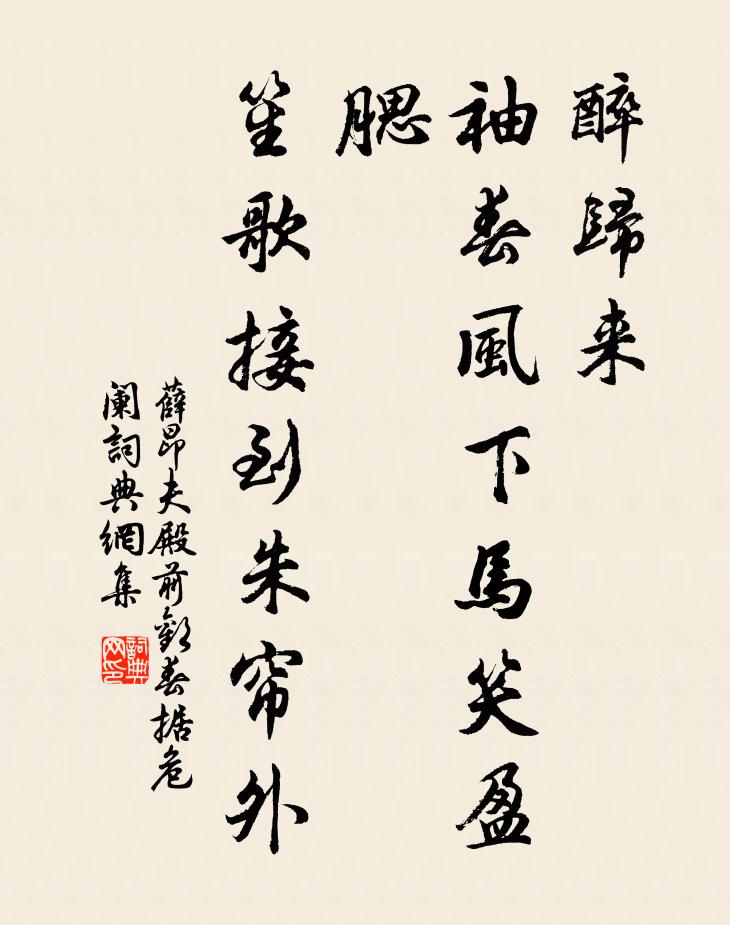 醉歸来
袖春風下馬笑盈
腮
笙歌接到朱帘外
薛昂夫殿前歡春据危
阑詞典網集
詞典网印